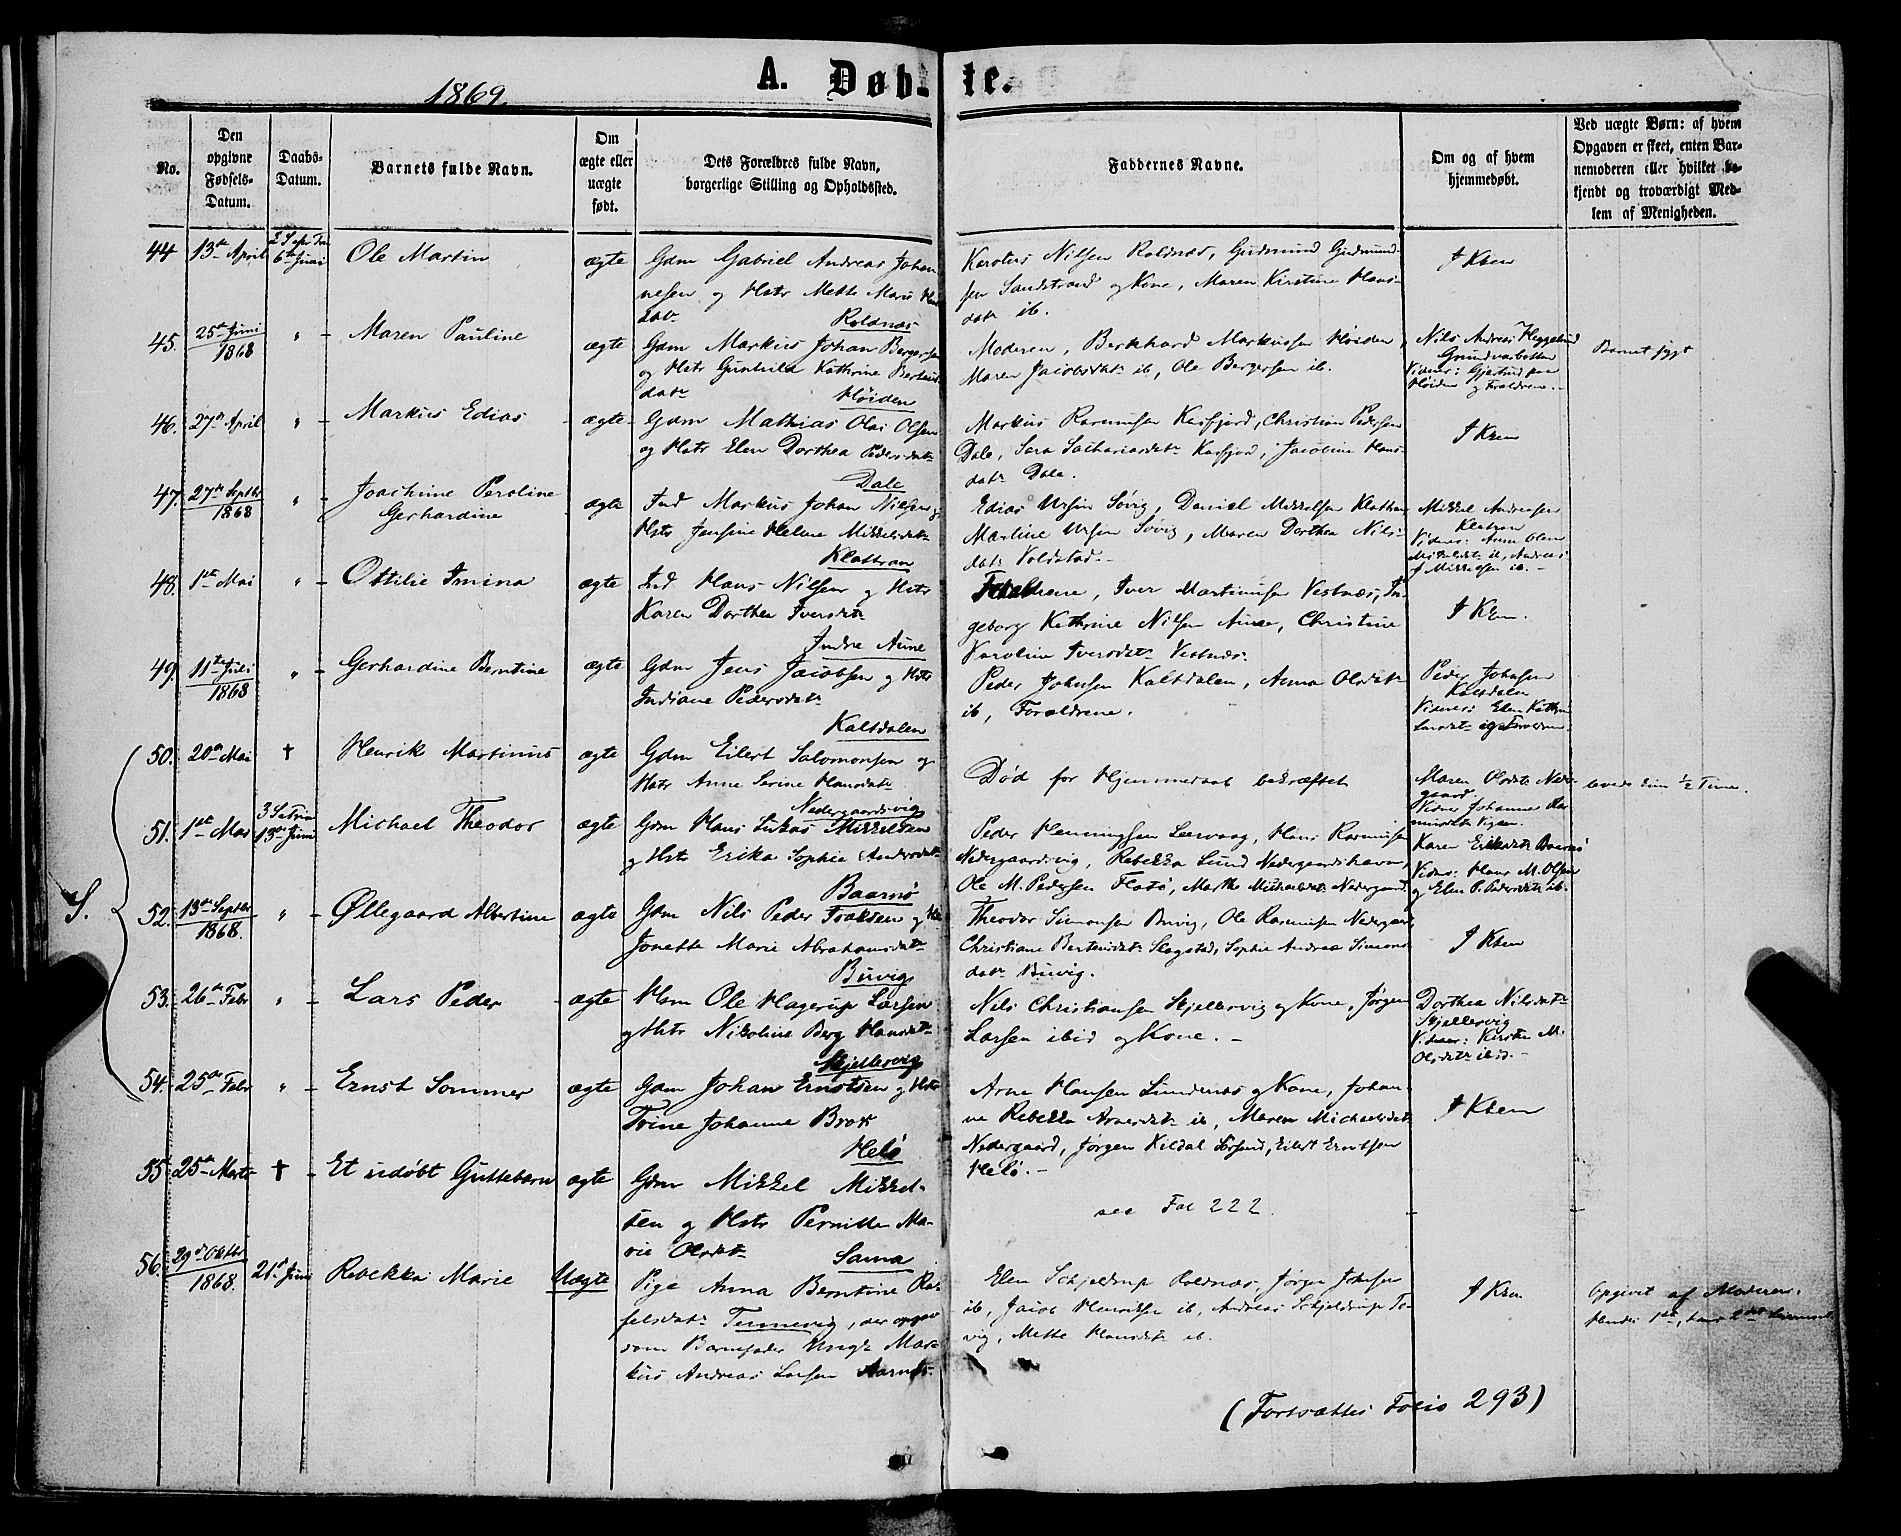 1869.
A. Døb-te.
No.
Den opgivne Fødsels-Datum.
Daabs-Datum.
Barnets fulde Navn.
Om ægte eller uægte født.
Dets Forældres fulde Navn, borgerlige Stilling og Opholdssted.
Faddernes Navne.
Om og af hvem hjemmedøbt.
Ved uægte Børn: af hvem Opgaven er skeet, enten Barnemoderen eller hvilket bekjendt og troværdigt Medlem af Menigheden.
44 13de April 6te Juni Ole Martin ægte
Gdm Gabriel Andreas Johannesen og Hstr Mette
datr Roldnæs
Nilsen Roldnæs, Gudmund Gudmundsen Sandstrand og Kone, Maren Kirstine Hansdatr ib.
I Kken
45. 25de Juni 1868 " - Maren Pauline ægte
Gdm Markus Johan Bergersen
og Hstr Kathrine
datr Høiden
Moderen, Markussen Høiden,
Maren Jacobsdatr ib, Ole Bergersen ib.
Nils Andreas Heggelund
Vidner: og Forældrene.
Barnet sygt
46. 27de April " - Markus Edias - ægte
Gdm Mathias Olai Olsen
og Hstr Elen Dorthea Pedersdatr
Dale
Markus Rasmussen Kasfjord, Christian Pedersen
Dale, Sara Kasfjord, Jacobine Hansdatr Dale.
I Kken
47. 27de Septbr 1868 " - Joachime Peroline Gerhardine ægte
Ind Markus Johan Nilsen og
Hstr Jensine Helene Mikkelsdatr
Klattran
Edias Ursin Søvig, Daniel Mikkelsen Klattran
Martine Ursin Søvig, Maren Dorthea Nilsdatr Voldstad.
Mikkel Andreasen
Klattran
Vidner: Anne Elen
ib, Andreas
Mikkelsen ib.
48. 1ste Mai " - Ottilie Imina ægte
Ind Hans Nilsen og Hstr
Karen Dorthea Iversdatr
Indre Aune
Forældrene, Iver Martinusen Vestnæs, Ingeborg Kathrine Nilsen Aune, Christine
Karoline Iversdatr Vestnæs.
I Kken.
49. 11te Juli 1868 " - Gerhardine Berntine ægte
Gdm Jens Jacobsen og Hstr
Indiane Pedersdatr
Kaltdalen
Peder Johnsen Kaltdalen, Anna Olsdatr
ib, Forældrene.
Peder Johnsen
Kaltdalen
Vidner: Elen
S. 50. 20de Mai † Henrik Martinus ægte
Gdm Eilert Salomonsen og
Hstr Anne Serine Hansdatr
Nedergaardsvig
Død før Hjemmedaab bekræftet
Maren Olsdatr Nedergaard
Vidner Johanne
levede kun 1/2 Time.
51. 1ste Mai 13de Juni Michael Theodor ægte
Gdm Hans Lukas Mikkelsen
og Hstr Erika Sophie Andersdatr
Baarnø
Peder Henningsen Leervaag, Hans Rasmusen
Nedergaardsvig, Rebekka Lund Nedergaardshavn,
Ole M. Pedersen Flatø, Marthe Michaelsdatr Nedergaard.
Karen Eriksdatr Baarnø
Vidner: Hans M. Olsen
og Elen P. Pedersdatr ib.
52. 13de Septbr 1868. " - Øllegaard Albertine ægte
Gdm Nils Peder Isaksen og Hstr
Jonette Marie Abrahamsdatr
Buvig
Theodor Simonsen Buvig, Ole Rasmusen Nedergaard,
Christiane Berteusdatr Slagstad, Sophie Andrea Simonsdatr Buvig.
I Kken
53. 26de Febr " - Lars Peder - ægte
Hsm Ole Hagerup Larsen
og Hstr Nikoline Berg Hansdatr
Skjellesvig
Nils Christiansen Skjellesvig og Kone, Jørgen
Larsen ibid og Kone. -
Dorthea Nilsdatr
Skjellesvig
Vidner: Kirstie M.
Olsdatr ibid. -
54. 25de Febr " - Ernst Sommer ægte
Gdm Johan Ernstsen og Hstr
Trine Johanne Brox
Helø
Arne Hansen Lundenæs og Kone, Johanne Rebekka Arnesdatr ib, Maren Michaelsdatr
Nedergaard, Jørgen Kildal, Eilert Erntsen
Helø. -
I Kken
55 25de Marts † - Et udøbt Guttebarn ægte
Gdm Mikkel Mikkelsen og Hstr Pernille Marie Olsdatr Sama
see Fol 222.
56. 29de Oktbr 1868. 21de Juni Rebekka Marie Uægte
Pige Anna Berntine
Tennevig, der opgav
som Barnefader Ungk. Markus Andreas Larsen
Elen Schjeldrup Roldnæs, Jørgen Johnsen
ib, Jacob Henriksen ib, Andreas Schjeldrup Tovig, Mette Hansdatr ib.
I Kken
Opgivet af Moderen.
Hendes 1ste, hans 2det
(Fortsættes Folio 293)